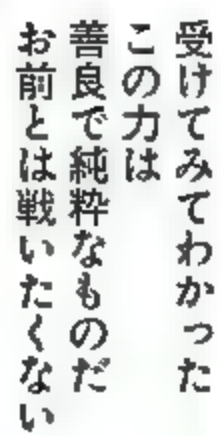 受けてみてわかった
この力は
善良で純粋なものだ
お前とは戦いたくない